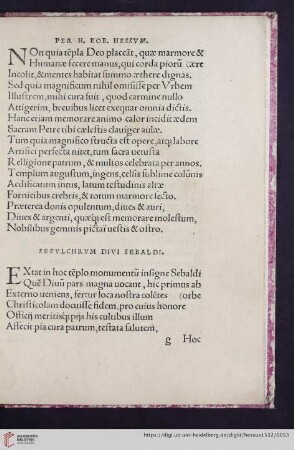 PER H. EOB. HESSVM.
NOn quia tẽpla Deo placeãt, quæ marmore &
Humanæ fecere manus, qui corda piorũ (ære
Incolit, & mentes habitat summo æthere dignas.
Sed quia magnificum nihil omisisse per Vrbem
Illustrem, mihi cura fuit, quod carmine nullo
Attigerim, breuibus licet exequar omnia dictis.
Hanc etiam memorare animo calor incidit ædem
Sacram Petre tibi cælestis clauiger aulæ.
Tum quia magnifico structa est opere, atq; labore
Artifici perfecta nitet, tum sacra uetusta
Relligione patrum, & multos celebrata per annos,
Templum augustum, ingens, celsis sublime colũnis
Aedificatum intus, latum testudinis altæ
Fornicibus crebris, & totum marmore secto.
Præterea donis opulentum, diues & auri,
Diues & argenti, quæq; est memorare molestum,
Nobilibus gemmis pictai uestis & ostro.
SEPVLCHRVM DIVI SEBALDI.
EXtat in hoc tẽplo monumentũ insigne Sebaldi
Quẽ Diuũ pars magna uocant, hic primus ab
Externo ueniens, fertur loca nostra colẽtes (orbe
Christicolam docuisse fidem, pro cuius honore
Officij meritisq; pijs his cultibus illum
Affecit pia cura patrum, testata salutem,
g Hoc
https://digi.ub.uni-heidelberg.de/diglit/hessus1532/0053